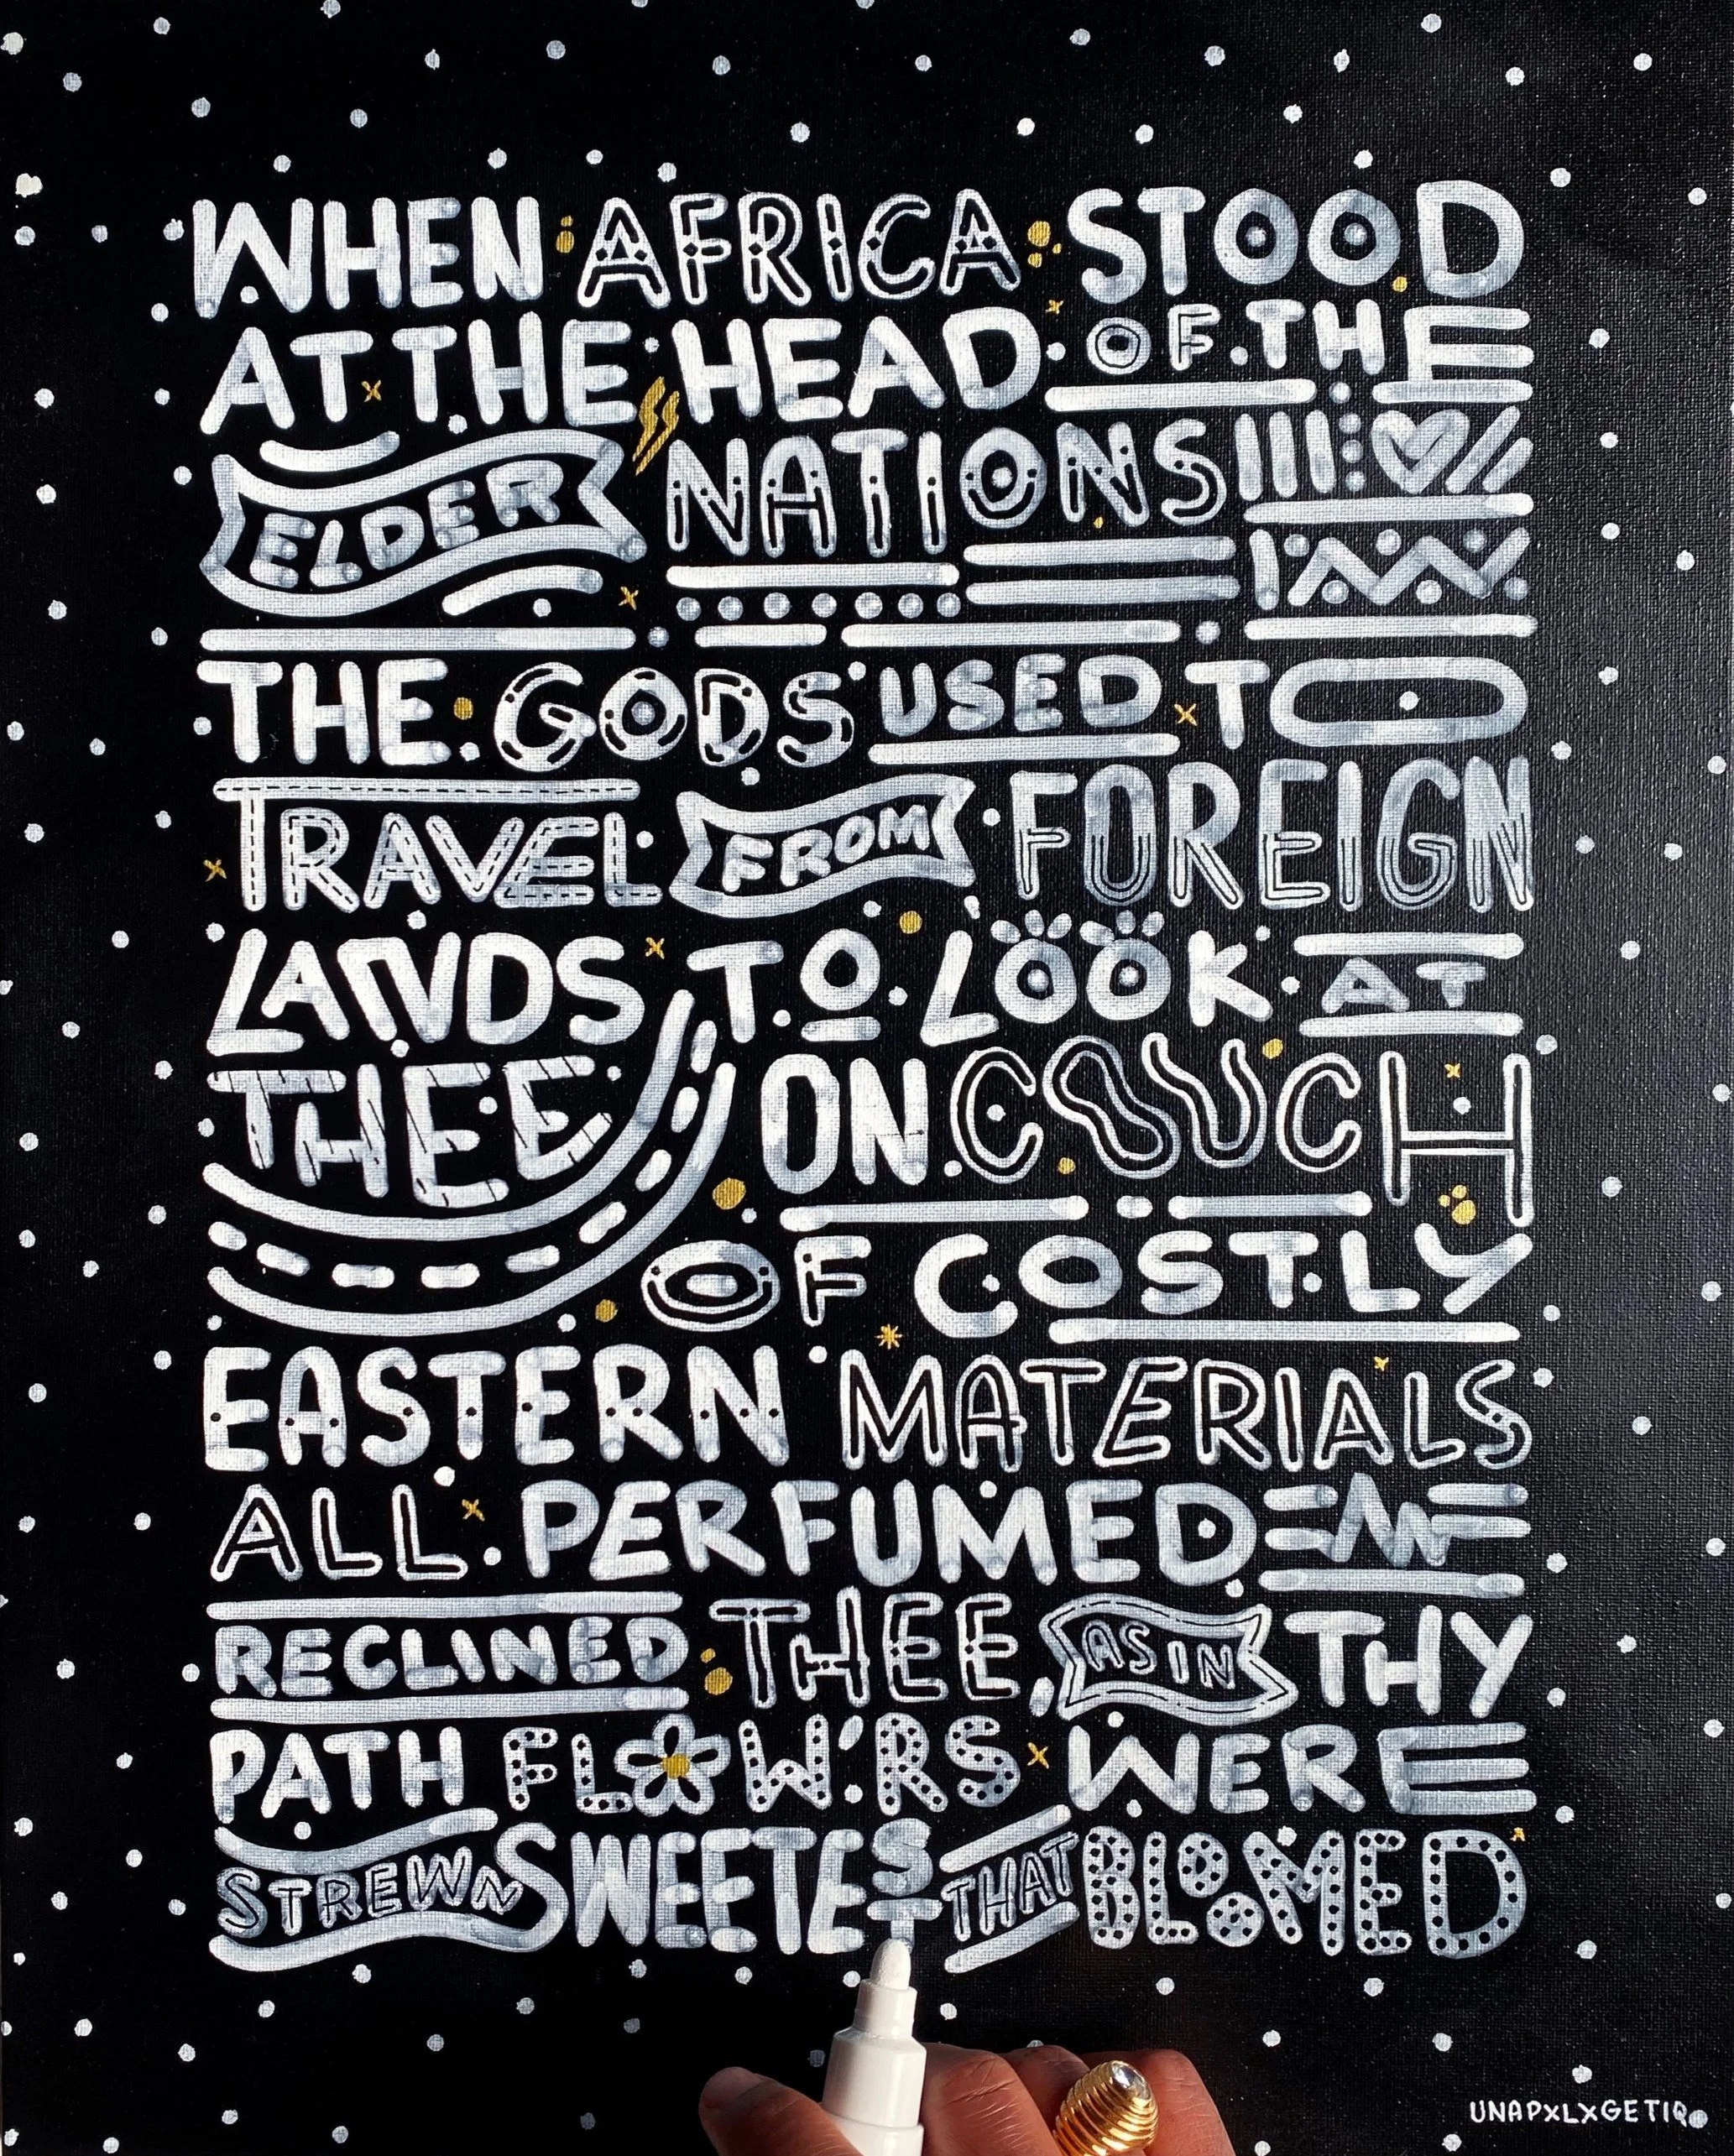 WHEN AFRICA STOOD
AT THE HEAD OF THE
ELDER NATIONS
THE GODS USED TO
TRAVEL FROM FOREIGN
LANDS TO LOOK AT
THEE ON COUCH
OF COSTLY
EASTERN MATERIALS
ALL PERFUMED
RECLINED THEE, AS IN THY
PATH FLOW'RS WERE
STREWN SWEETEST THAT BLOOMED
UNAPXLXGETIQ